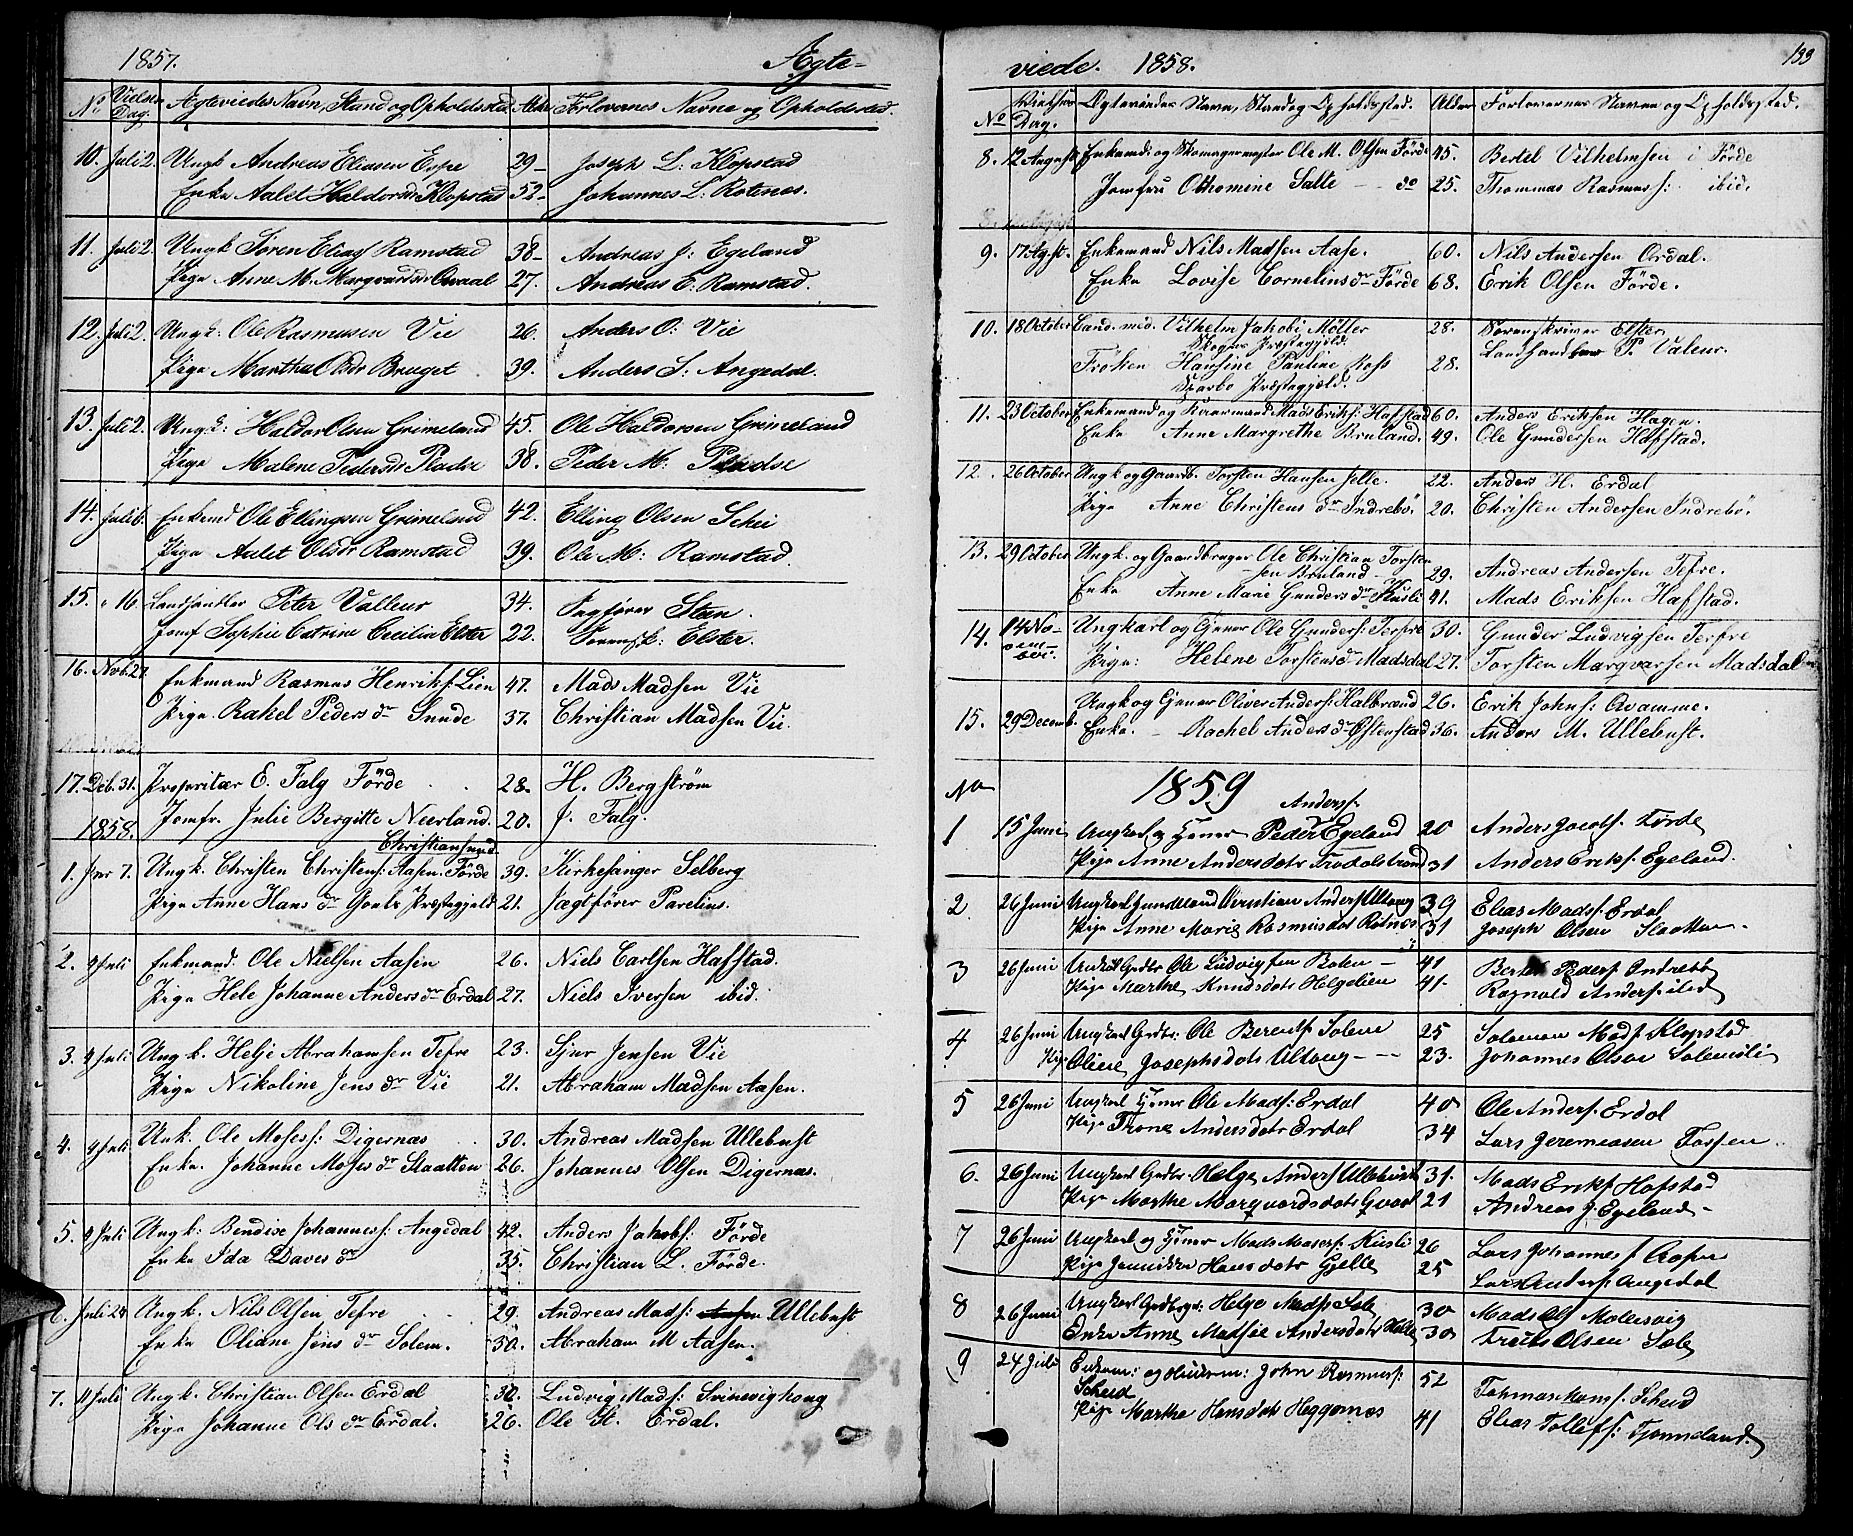 1857. Ægte-
No Vielses Dag. Ægteviedes Navn, Stand og Opholdssted. Alder Forlovernes Navne og Opholdssted.
10. Juli 2. Ungk Andreas Eliasen Espe 29- Joseph L: Klopstad
Enke Aalet Haldorsdr Klopstad 52- Johannes L: Rotenæs.
11. Juli 2. Ungk Sören Elias Ramstad 38- Andreas J: Egeland
Pige Anne M. Marqvardsdr Qvaal 27. Andreas E. Ramstad.
12. Juli 2. Ungk: Ole Rasmusen Vie 26. Anders O: Vie
Pige Martha Olsdr Bruget 39. Anders S: Angedal.
13. Juli 2. Ungk: Haldor Olsen Grimeland 45. Ole Haldorsen Grimeland
Pige Malene Pedersdr Pladse 38. Peder M: Pladse
14. Juli 6. Enkemd Ole Ellingsen Grimeland 42. Elling Olsen Schei
Pige Aalet Olsdr Ramstad 39. Ole M: Ramstad.
15. " 16 Landhandler Peter Valleur 34. Fogfører Steen.
Jomf Sophie Catrine Cecilia Elster 22. Sorensk: Elster.
16. Nob. 27. Enkmand Rasmus Henriks: Lien 47. Mads Madsen Vie
Pige Rakel Peders dr Sunde 37. Christian Madsen Vie.
17. Deb. 31. Proprietær E. Falg Förde 28. H. Bergström
Jomfr. Julie Bergitte Neerland. 20. J. Falg.
1858. Christiansund
1. Jnr 7. Ungk. Christen Christens: Aasen. Förde 39. Kirkesanger Selberg
Pige Anne Hans dr Præstegjeld 21. Jægtfører Parelius.
2. 4 Juli Enkmand: Ole Nielsen Aasen 26. Niels Carlsen Hafstad.
Pige Hele Johanne Anders dr Erdal 27. Niels Iversen ibid.
3. 4 Juli Ungk. Helje Abrahamsen Tefre 23. Sjur Jensen Vie
Pige Nikoline Jens dr Vie 21. Abraham Madsen Aasen.
4. 4 Juli Unk. Ole Moses: Digernæs 30. Andreas Madsen Ullebust
Enke. Johanne Moses dr Slaatten 26. Johannes Olsen Digernæs.
5. 4 Juli Ungk: Bendix Johannes: Angedal 42. Anders Jakobs: Förde
Enke Ida Daves dr 35. Christian L. Förde.
6. Juli 24 Ungk. Nils Olsen Tefre 29. Andreas Mads: Ullebust
Enke Olidne Jens dr Solem. 30. Abraham M Aasen.
7. 4 Juli Ungk. Christian Olsen Erdal 32. Ludvig Mads: Svinevighoug
Pige Johanne Ols dr Erdal. 26. Ole St. Erdal.
viede. 1858. 133
No Vielses Dag. Ægteviedes Navn, Stand og Opholdssted. Alder Forlovernes Navne og Opholdssted.
8. 12 August Enkemd: og Skomagermester Ole M. Olsen Förde 45. Bertel Vilhelmsen i Förde
Jomfru Othomine Salte - - do 25. Thommas Rasmus: ibid.
9. 17 Agst. Enkemand Nils Madsen Aase. 60. Nils Andersen Ordal.
Enke Lovise Cornelius dr Förde 68. Erik Olsen Förde.
10. 18 October Cand. med. Vilhelm Jakobi Möller 28. Sorenskriver Elster
Skoger Præstegjeld. Landhandler P. Valeur.
Fröken Hansine Pauline Ross 28.
Præstegjeld.
11. 23 October Enkemand og Mads Eriks: Hafstad 60. Anders Eriksen Hagen.
Enke Anne Margrethe Bruland. 49. Ole Gundersen Hafstad.
12. 26 October Ungk og Gaardb. Torsten Hansen Selle. 22. Anders H. Erdal
Pige Anne Christens dr Indrebö 20. Christen Andersen Indrebö.
13. 29 October Ungk. og Gaardbruger Ole Christian Torsten
sen Bruland 29. Andreas Andersen Tefre.
Enke Anne Marie Gunders dr Kusli 41. Mads Eriksen Hafstad.
14. 14 No- Ungkarl og Ejener Ole Gunders: Terfre 30. Gunder Ludvigsen Terfre
vem-
ber. Pige: Helene Torstens dr Madsdal 27. Torsten Marqvarsen Madsdalen
15. 29 Decemb. Ungk og Ejener Oliver Anders: Halbrænd 26. Erik Johns: Qvamme.
Enke. - Rachel Anders dr Østenstad 36. Anders M. Ullebust.
No 1859
Anders:
1 15 Juni Ungkarl og Ejener Peder Egeland 20 Anders Jacobs: Förde
Pige Anne Andersdatr Frodalstrand 31 Anders Eriks: Egeland.
2 26 Juni Ungkarl Christian Anders: Ultang 39 Elias Mads: Erdal
Pige Anne Marie Rasmusdat Rotnes 31 Joseph Olsen Slaatten
3 26 Juni Ungkarl Grdbr Ole Ludvigsen Bolen - 41 Bertel Peders: Indrebö
Pige Marthe Knudsdatr Helgelien 41. Ragnald Anders: ibid
4 26 Juni Ungkarl Grdbr: Ole Berents Solem 25 Salomon Mads Klopstad
Pig Oliene Josephsdatr Ultang - - - 23. Johannes Olsen Solemslie
5 26 Juni Ungkarl Ejener Ole Mads: Erdal 40 Ole Anders: Erdal
Pige Trone Andersdatr Erdal 34 Lars Jeremiasen Fossen
6. 26 Juni Ungkarl Grdbr Helge Anders Ullebust 31. Mads Eriks Hafstad
Pige Marthe Marqvardsdatr Qvaal 21 Andreas J. Egeland -
7 26 Juni Ungkarl og Ejener Mads Moses: Kusli 26 Lars Johannes
Pige Jennikke Hansdatr Gjelle 25 Lars Anders: Angedal
8 26 Juni Ungkarl Grdbrgr: Helge Mads Sole 30 Mads Ols Molesvig
Enke Anne Madsie Andersdatr 30 Olsen Sole
9 24 Juli Enkem: og Huusm: John Rasmus: 52 Tohmas Hans: Scheid
Scheid
Pige Marthe Hansdatr Heggenes 41 Elias Tollefs: Tjønneland.